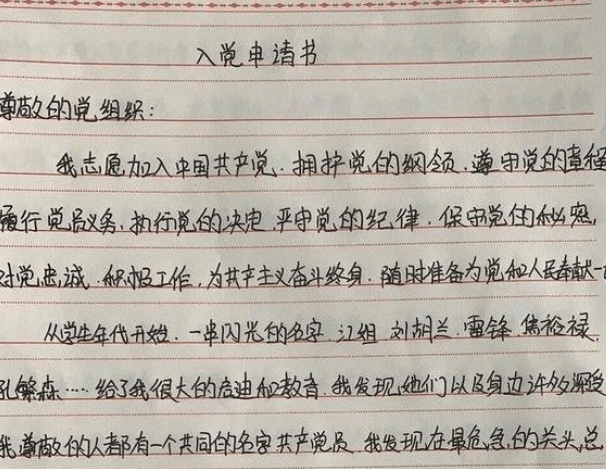 入党申请书
尊敬的党组织：
我志愿加入中国共产党.拥护党的纲领.遵守党的章程
履行党员义务.执行党的决定.严守党的纪律.保守党的秘密,
对党忠诚.积极工作,为共产主义奋斗终身.随时准备为党和人民奉献一
从学生年代开始.一串闪光的名字.江姐.刘胡兰.雷锋.焦裕禄.
孔繁森....给了我很大的启迪和教育.我发现他们以及身边许多深受
我尊敬的人都有一个共同的名字共产党员.我发现在最危急的关头总